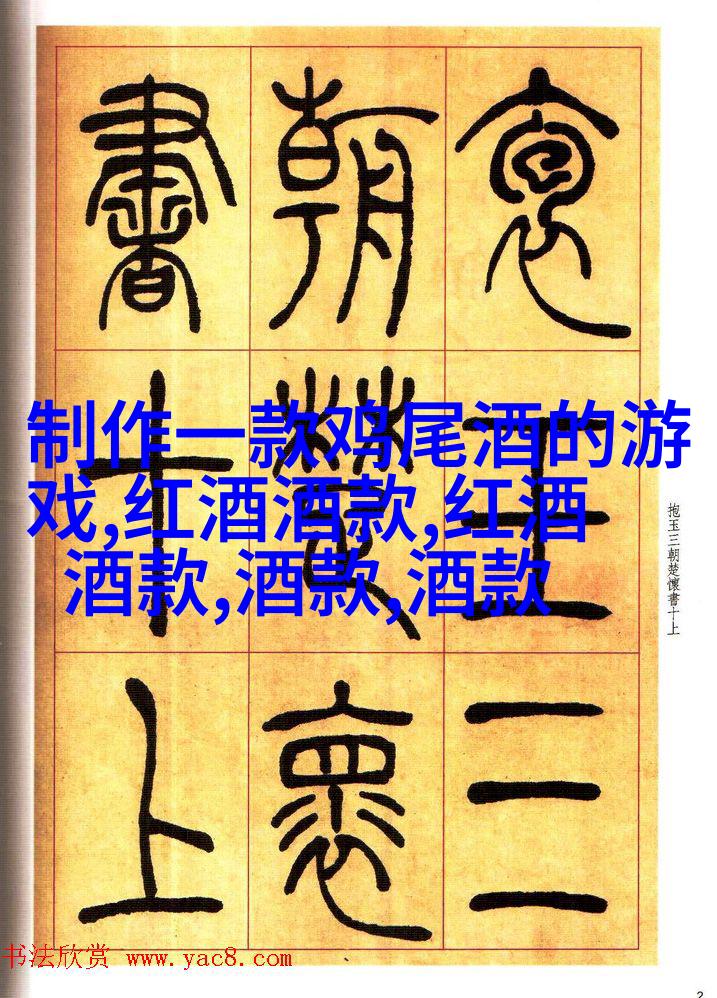 袌玉三
朝楚褱
書十上
制作一款鸡尾酒的游
戏,红酒酒款,红酒
酒款,酒款,酒款
抱玉三朝楚懷書十上
书法欣赏 www.yac8.com
2